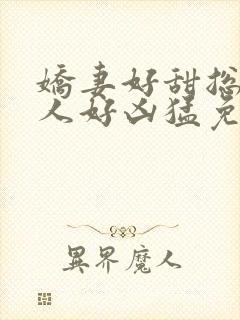 嬌妻好甜总
人好凶猛免
異界魔人